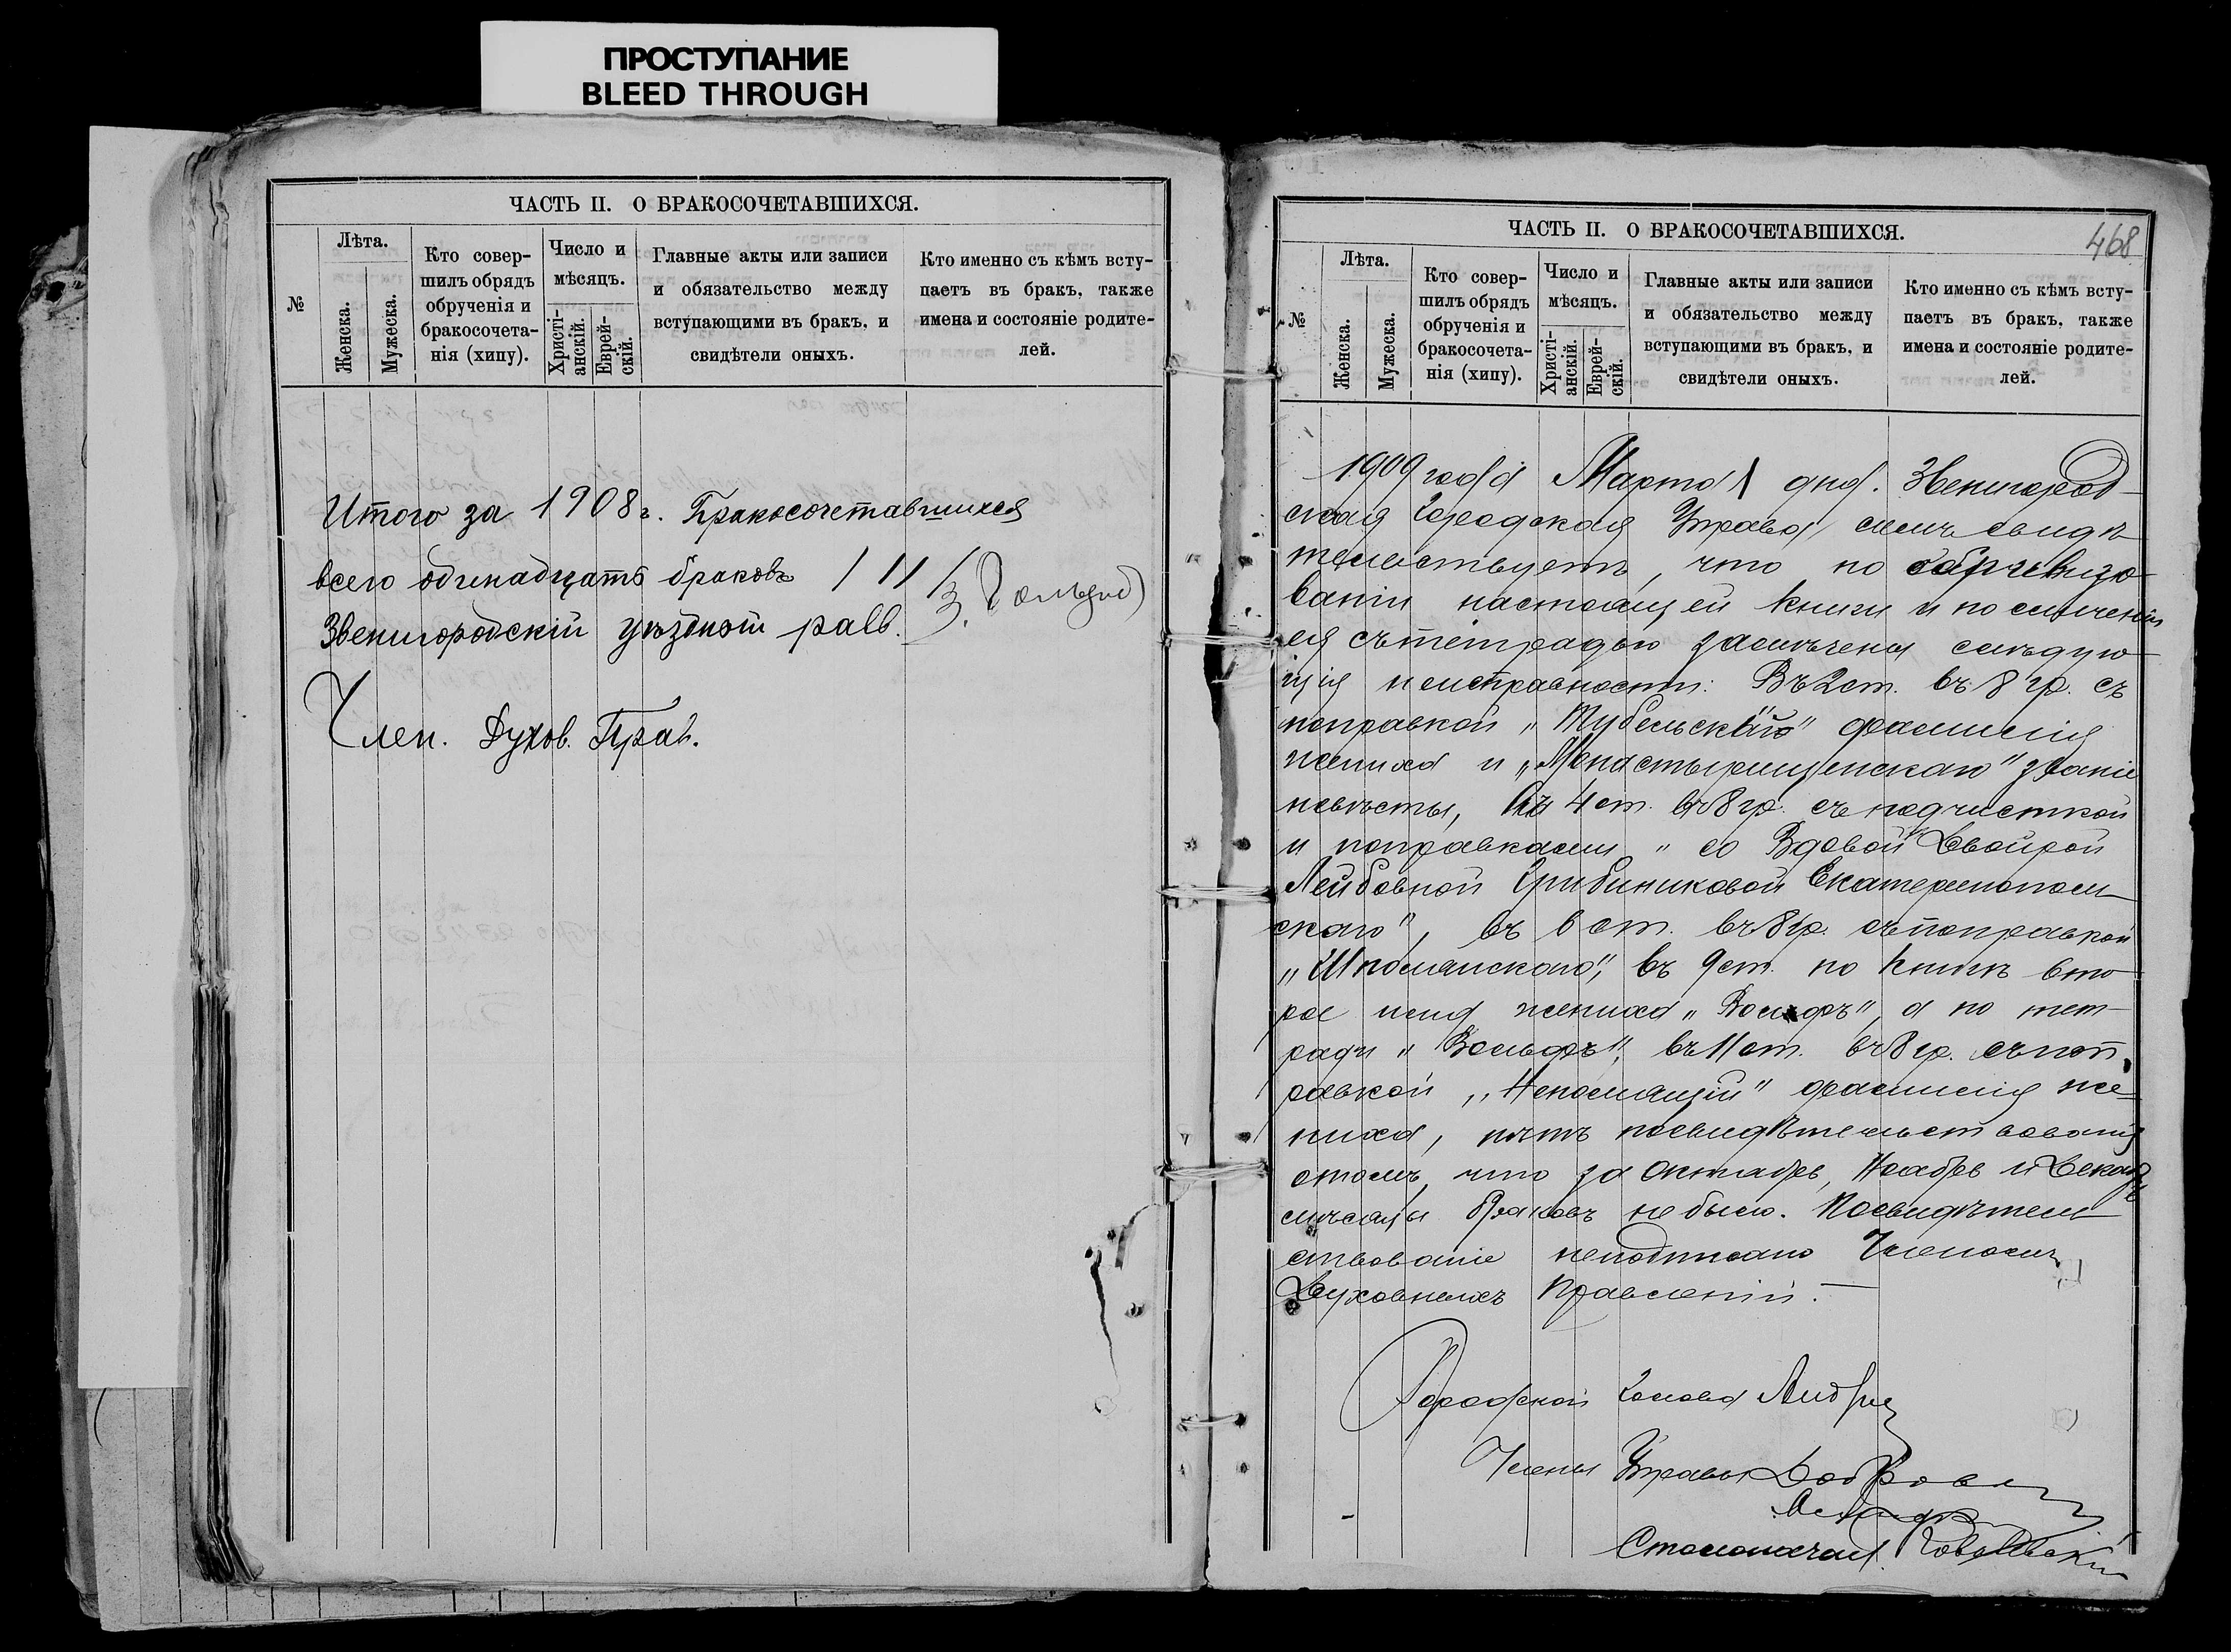 ПРОСТУПАНИЕ
BLEED THROUGH
ЧАСТЬ II. О БРАКОСОЧЕТАВШИХСЯ.
№
Лѣта.
Женска.
Мужеска.
Кто совер-
шилъ обрядъ
обрученія и
бракосочета-
нія (хипу).
Число и
мѣсяцъ.
Христі-
анскій.
Еврей-
скій.
Главные акты или записи
и обязательство между
вступающими въ бракъ, и
свидѣтели оныхъ.
Кто именно съ кѣмъ всту-
паетъ въ бракъ, также
имена и состояніе родите-
лей.
Итого за 1908 г. Бракосочетавшихся
всего одинадцать браковъ / 11 /
Звенигородскій уѣздный равв.
Член. Духов. Прав.
468
ЧАСТЬ II. О БРАКОСОЧЕТАВШИХСЯ.
№
Лѣта.
Женска.
Мужеска.
Кто совер-
шилъ обрядъ
обрученія и
бракосочета-
нія (хипу).
Число и
мѣсяцъ.
Христі-
анскій.
Еврей-
скій.
Главные акты или записи
и обязательство между
вступающими въ бракъ, и
свидѣтели оныхъ.
Кто именно съ кѣмъ всту-
паетъ въ бракъ, также
имена и состояніе родите-
лей.
1909 года Марта 1 дня. Звенигород-
ская Городская Управа симъ свидѣ-
тельствуетъ, что по обревизо-
ваніи настоящей книги и по сличеніи
ея съ тетрадью замѣчены слѣдую-
щія неисправности: Въ 2 ст. въ 8 гр. съ
поправкой фамилія
жениха и „Монастырищенскаго" званіе
невѣсты, въ 4 ст. въ 8 гр. съ подчисткой
и поправками „со Вдовой Двойрой
Лейбовной Грибиниковой Екатеринополь-
скаго", въ 6 ст. въ 8 гр. съ поправкой
„Шполянскаго", въ 9 ст. по книгѣ вто-
рое имя жениха а по тет-
ради „Вольфъ", въ 11 ст. въ 8 гр. съ поп-
равкой „Непомящій" фамилія же-
ниха, нѣтъ посвидѣтельствованія
о томъ, что за Октябрь, Ноябрь и Декабрь
мѣсяцы браковъ не было. Посвидѣтель-
ствованіе неподписано Членомъ
Духовныхъ Правленій.
Городской Голова
Члены Управы
Столоначал.